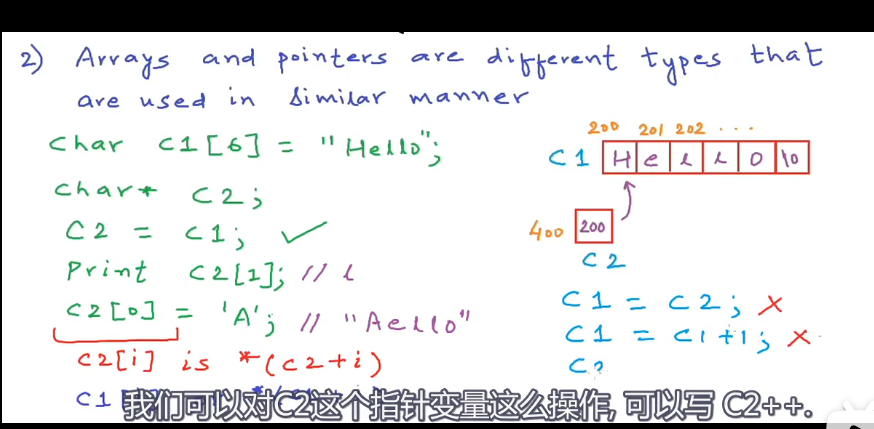 2) Arrays and pointers are different types that
are used in similar manner
Char C1[6] = "Hello";
Char* C2;
C2 = C1; ✓
Print C2[1]; // l
C2[0] = 'A'; // "Aello"
C2[i] is *(C2+i)
C1
200 201 202 ...
C1 H e l l o \0
400 200
C2
C1 = C2; X
C1 = C1+1; X
C2
我们可以对C2这个指针变量这么操作, 可以写 C2++.